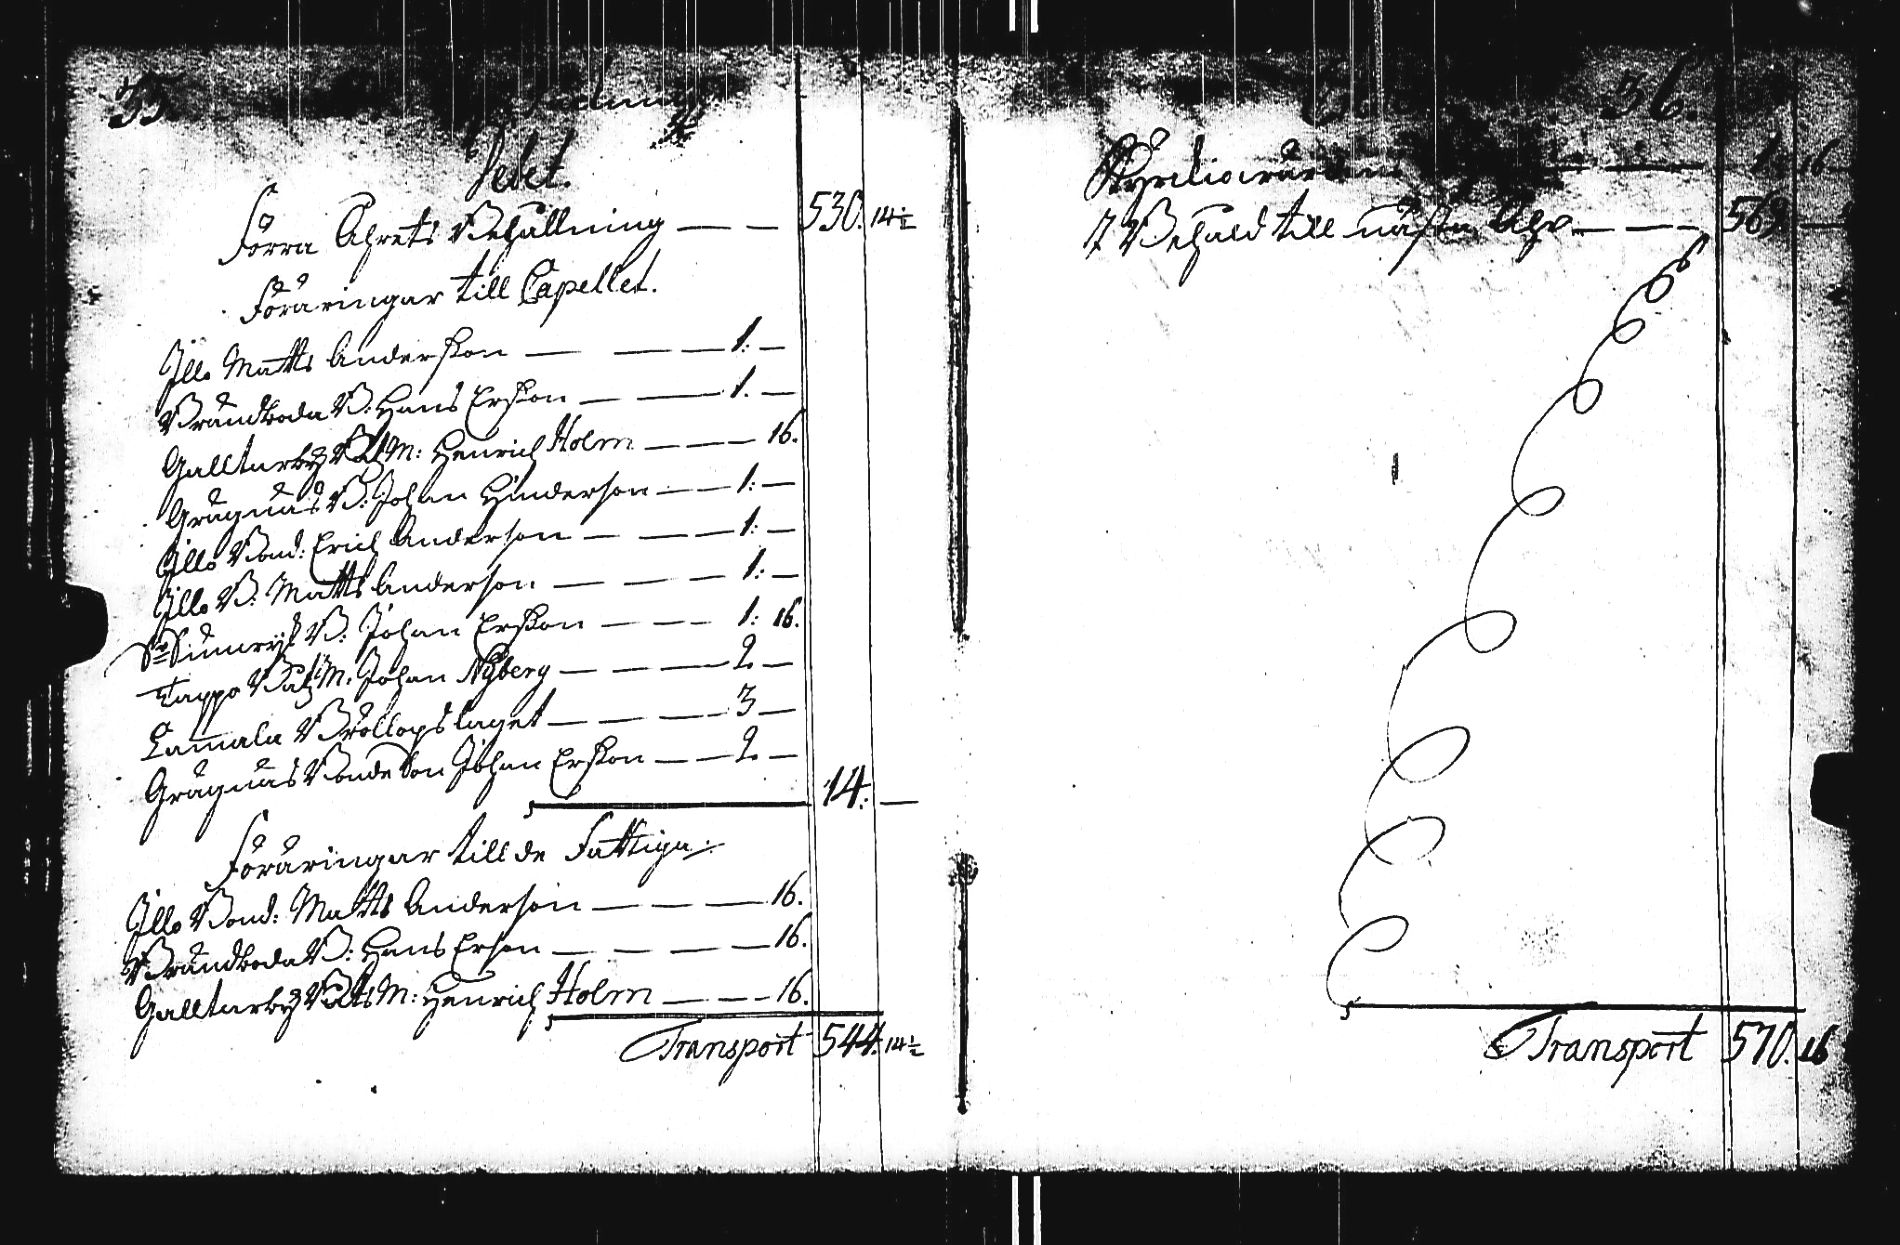 35
Debet.
Förra Åhrets Behållning — — 530. 14½
Föräringar till Capellet.
Jllo Matts Anderßon — — — 1: —
Brändboda B: Hans Erßon — — 1. —
Galltarby M: Henrich Holm — — — 16.
Grägnäs B: Johan Hinderson — — 1: —
Jllo Bond: Erich Anderson — — — 1: —
Jllo B: Matts Anderson — — — 1: —
B: Johan Erßon — — — 1: 16.
Tappo M: Johan Nyberg — — — 2 —
Lamala Bröllopslaget — — — 3 —
Grägnäs Bonde Son Johan Erßon — — 2 —
14: —
Föräringar till de Fattiga:
Jllo Bond: Matts Anderson — — — 16.
Brändboda B: Hans Erson — — — 16.
Galltarby M: Henrich Holm — — — 16.
Transport 544: 14½
36.
1 16
Behåld till nästa Åhr — — — 569 —
Transport 570. 16